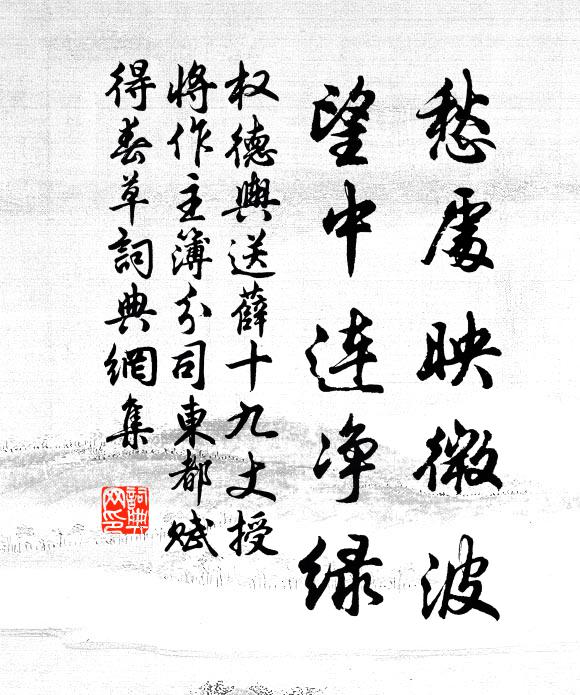 愁處映微波
望中連净緑
权德輿送薛十九丈授
将作主簿分司東都赋
得春草詞典網集
詞典網印